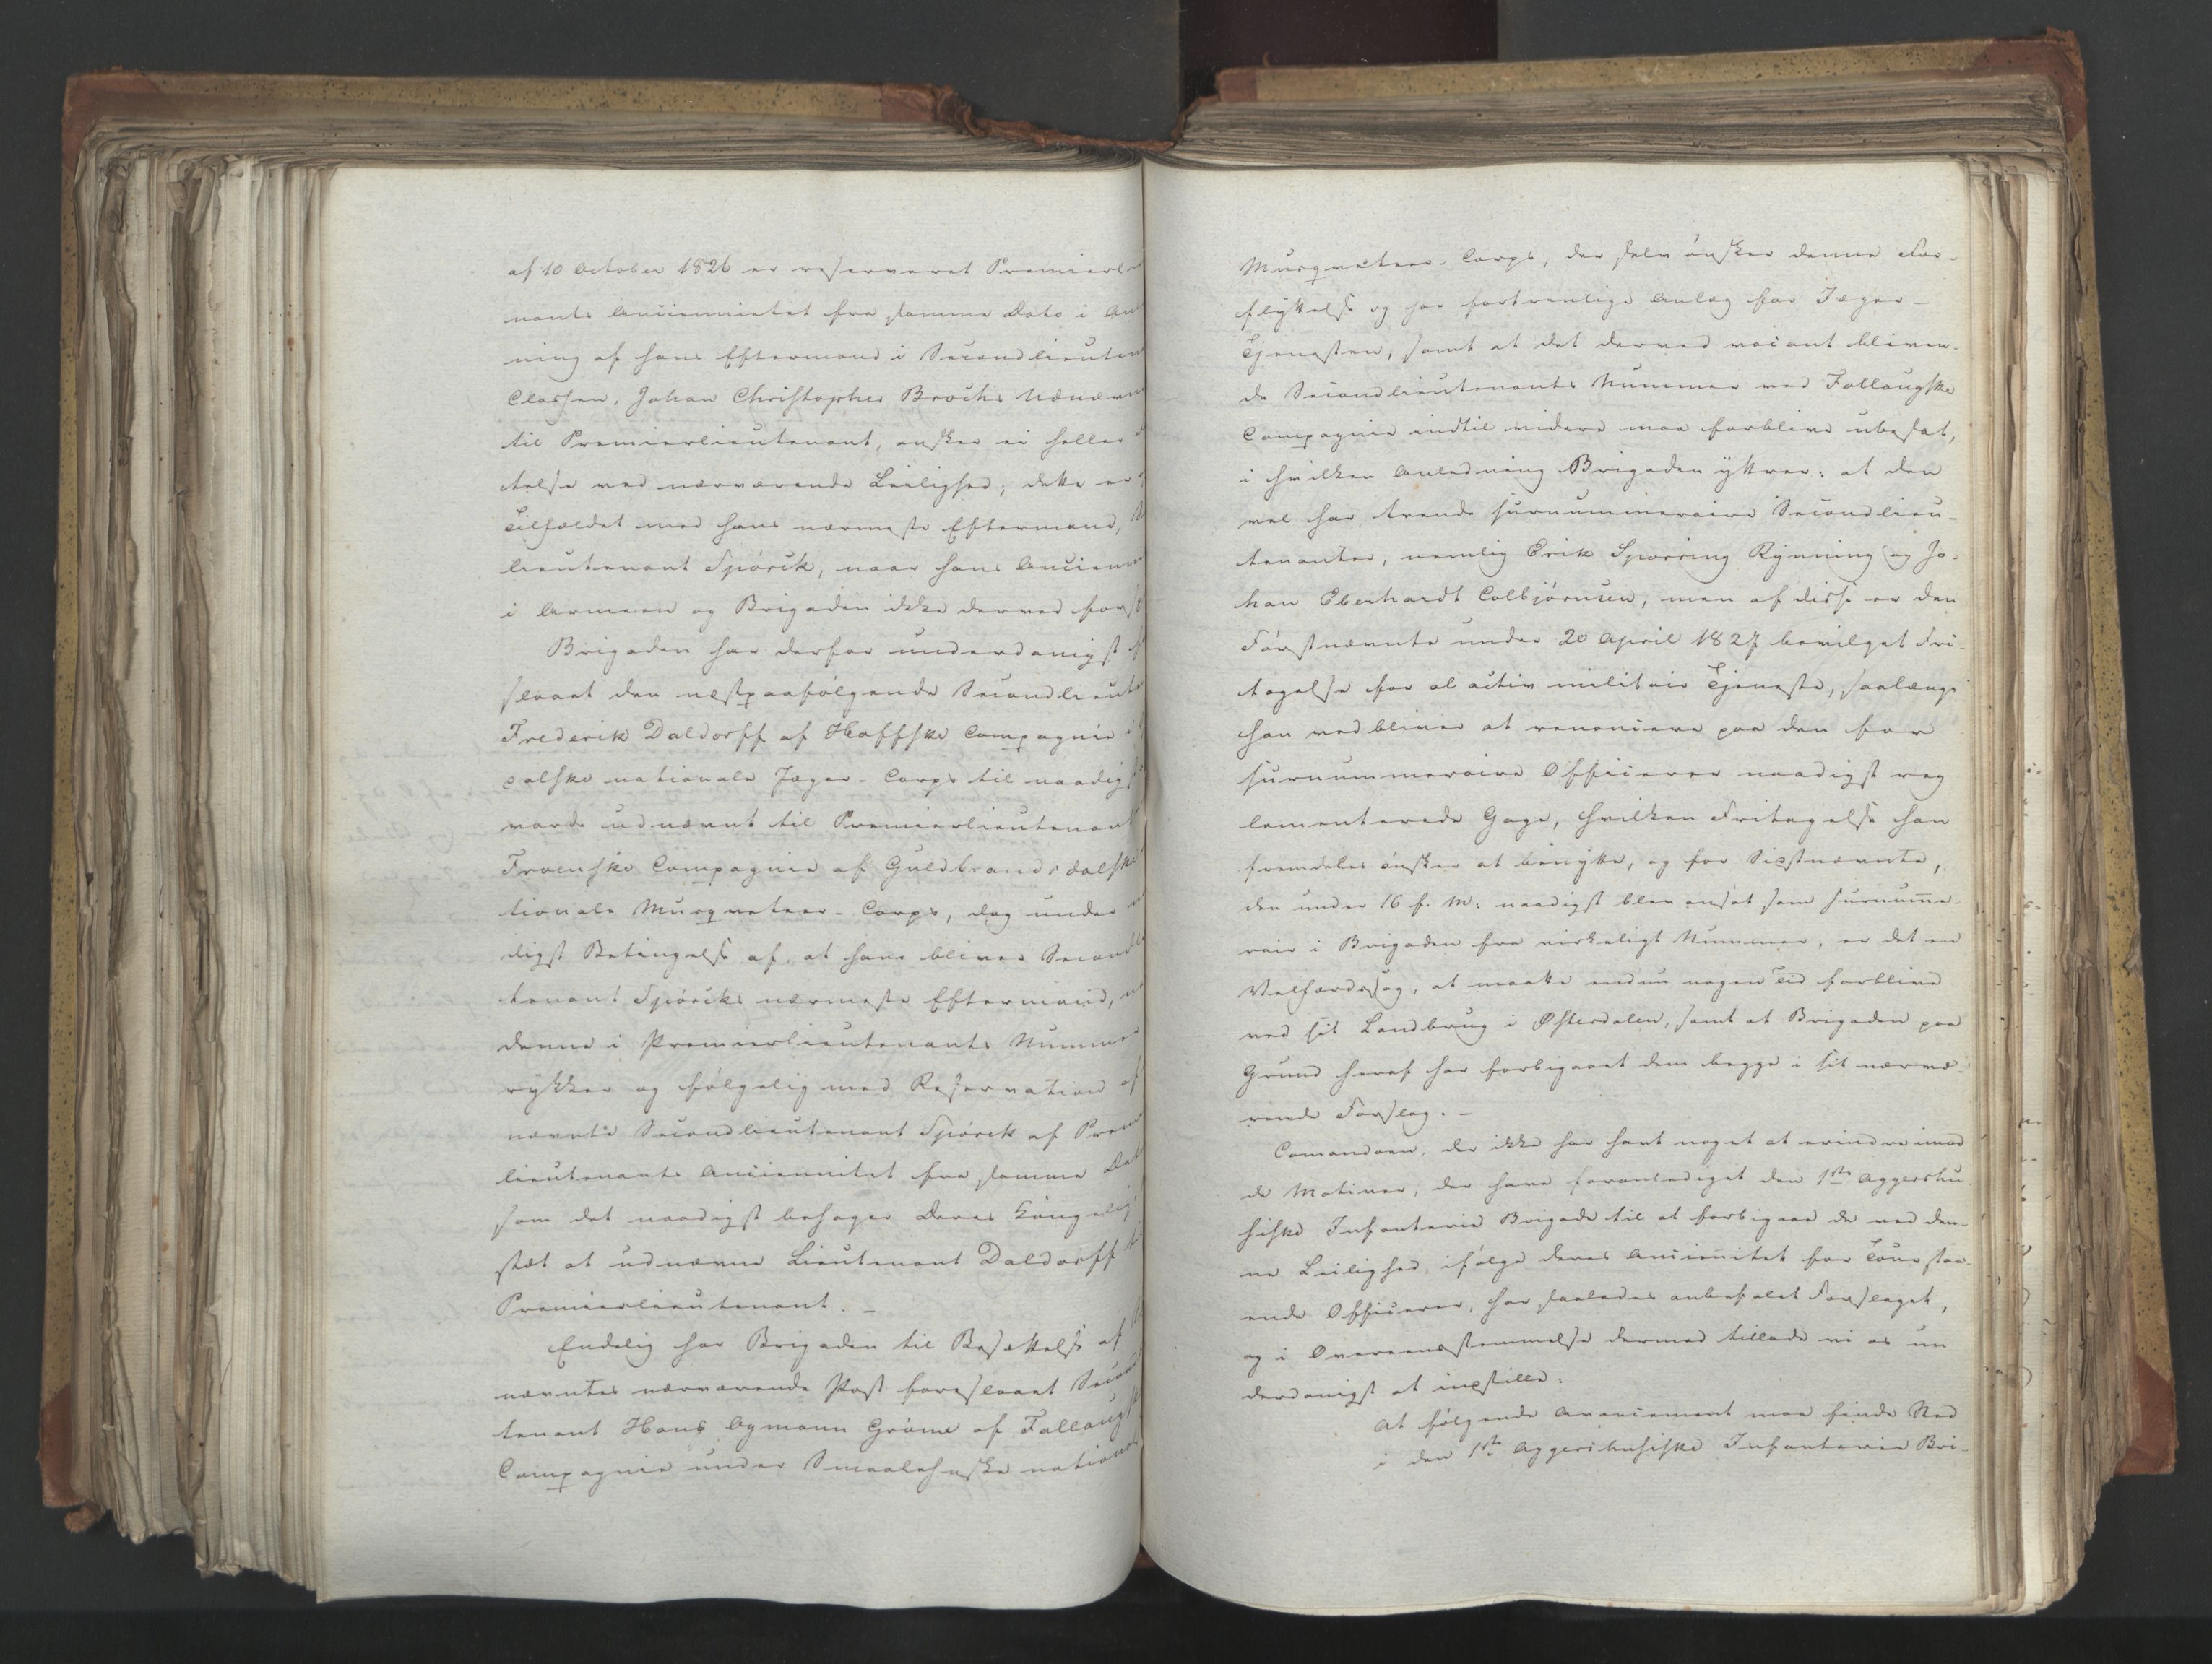 af 10 October 1826 er reserveret Premierl
nants Anciennitet fra samme Dato i An
ning af hans Eftermand i Secondlieuten
Classen, Johan Christopher Brochs Udnævn
til Premierlieutenant, ønsker ei heller
telse ved nærværende Leilighed; dette er
Tilfældet med hans nærmeste Eftermand,
lieutenant Spörck, naar hans Ancienni
i Armeen og Brigaden ikke derved fors
Brigaden har derfor underdanigst
slaaet den næstpaafølgende Secondlieute
Frederik Daldorff af Hoffske Compagnie i
dalske nationale Jæger-Corps til naadigst
vorde udnævnt til Premierlieutenant
Froenske Compagnie af Guldbrandsdalske
tionale Musqueteer-Corps, dog under
digst Betingelse af, at hans bliver Secondl
tenant Spörcks nærmeste Eftermand,
denne i Premierlieutenants Nummer
rykker og følgelig med Reservation af
nævnte Secondlieutenant Spörck af Prem
lieutenants Anciennitet fra samme Dat
som det naadigst behager Deres Kongelig
stæt at udnævne Lieutenant Daldorff til
Premierlieutenant. –
Endelig har Brigaden til Besættelse af
nævntes nærværende Post foreslaaet Secon
tenant Hans Aymann Gröme af Fallaugsk
Compagnie under Smaalehnske nationa
Musqueteer-Corps, der selv ønsker denne For-
flyttelse og har fortrinlige Anlæg for Jæger-
Tjenesten, samt at det derved vacant bliven-
de Secondlieutenants Nummer ved Fallaugske
Compagnie indtil videre maa forblive ubesat,
i hvilken Anledning Brigaden yttrer: at den
vel har trende surnummeraire Secondlieu-
tenanter, nemlig Erik Sparring Rynning og Jo-
han Eberhardt Colbjörnsen, men af disse er den
Førstnævnte under 20 April 1827 bevilget Fri-
tagelse for al activ militair Tjeneste, saalænge
han vedbliver at renoncere paa den for
surnummeraire Officierer naadigst reg
lementerede Gage, hvilken Fritagelse han
fremdeles ønsker at benytte, og for Sidstnævnte,
der under 16 f. M: naadigst blev ansat som surnumme-
rair i Brigaden fra virkeligt Nummer, er det en
Velfærdssag, at maatte endnu nogen Tid forblive
ved sit Landbrug i Østerdalen, samt at Brigaden paa
Grund heraf har forbigaaet dem begge i sit nærvæ-
rende Forslag. –
Comandoen, der ikke har havt noget at erindre imod
de Motiver, der have foranlediget den 1ste Aggershu
siske Infanterie Brigade til at forbigaae de ved den-
ne Leilighed, ifølge deres Anciennitet for Tour staa-
ende Officierer, har saaledes anbefalet Forslaget,
og i Overeensstemmelse dermed tillade vi os un
derdanigst at indstille:
At følgende Avancement maa finde Sted
i den 1ste Aggershusiske Infanterie Bri-